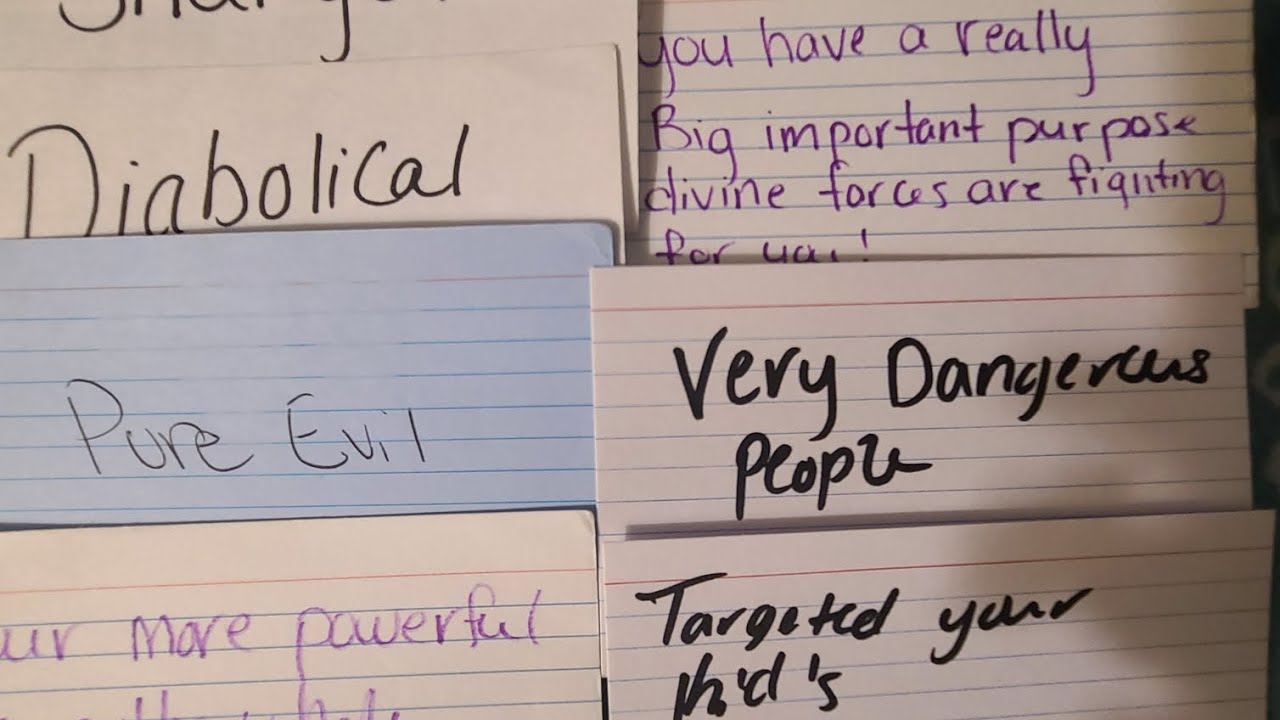 Diabolical
you have a really
Big important purpose
divine forces are fighting
for you!
Pure Evil
Very Dangerous
People
ur more powerful
Targeted your